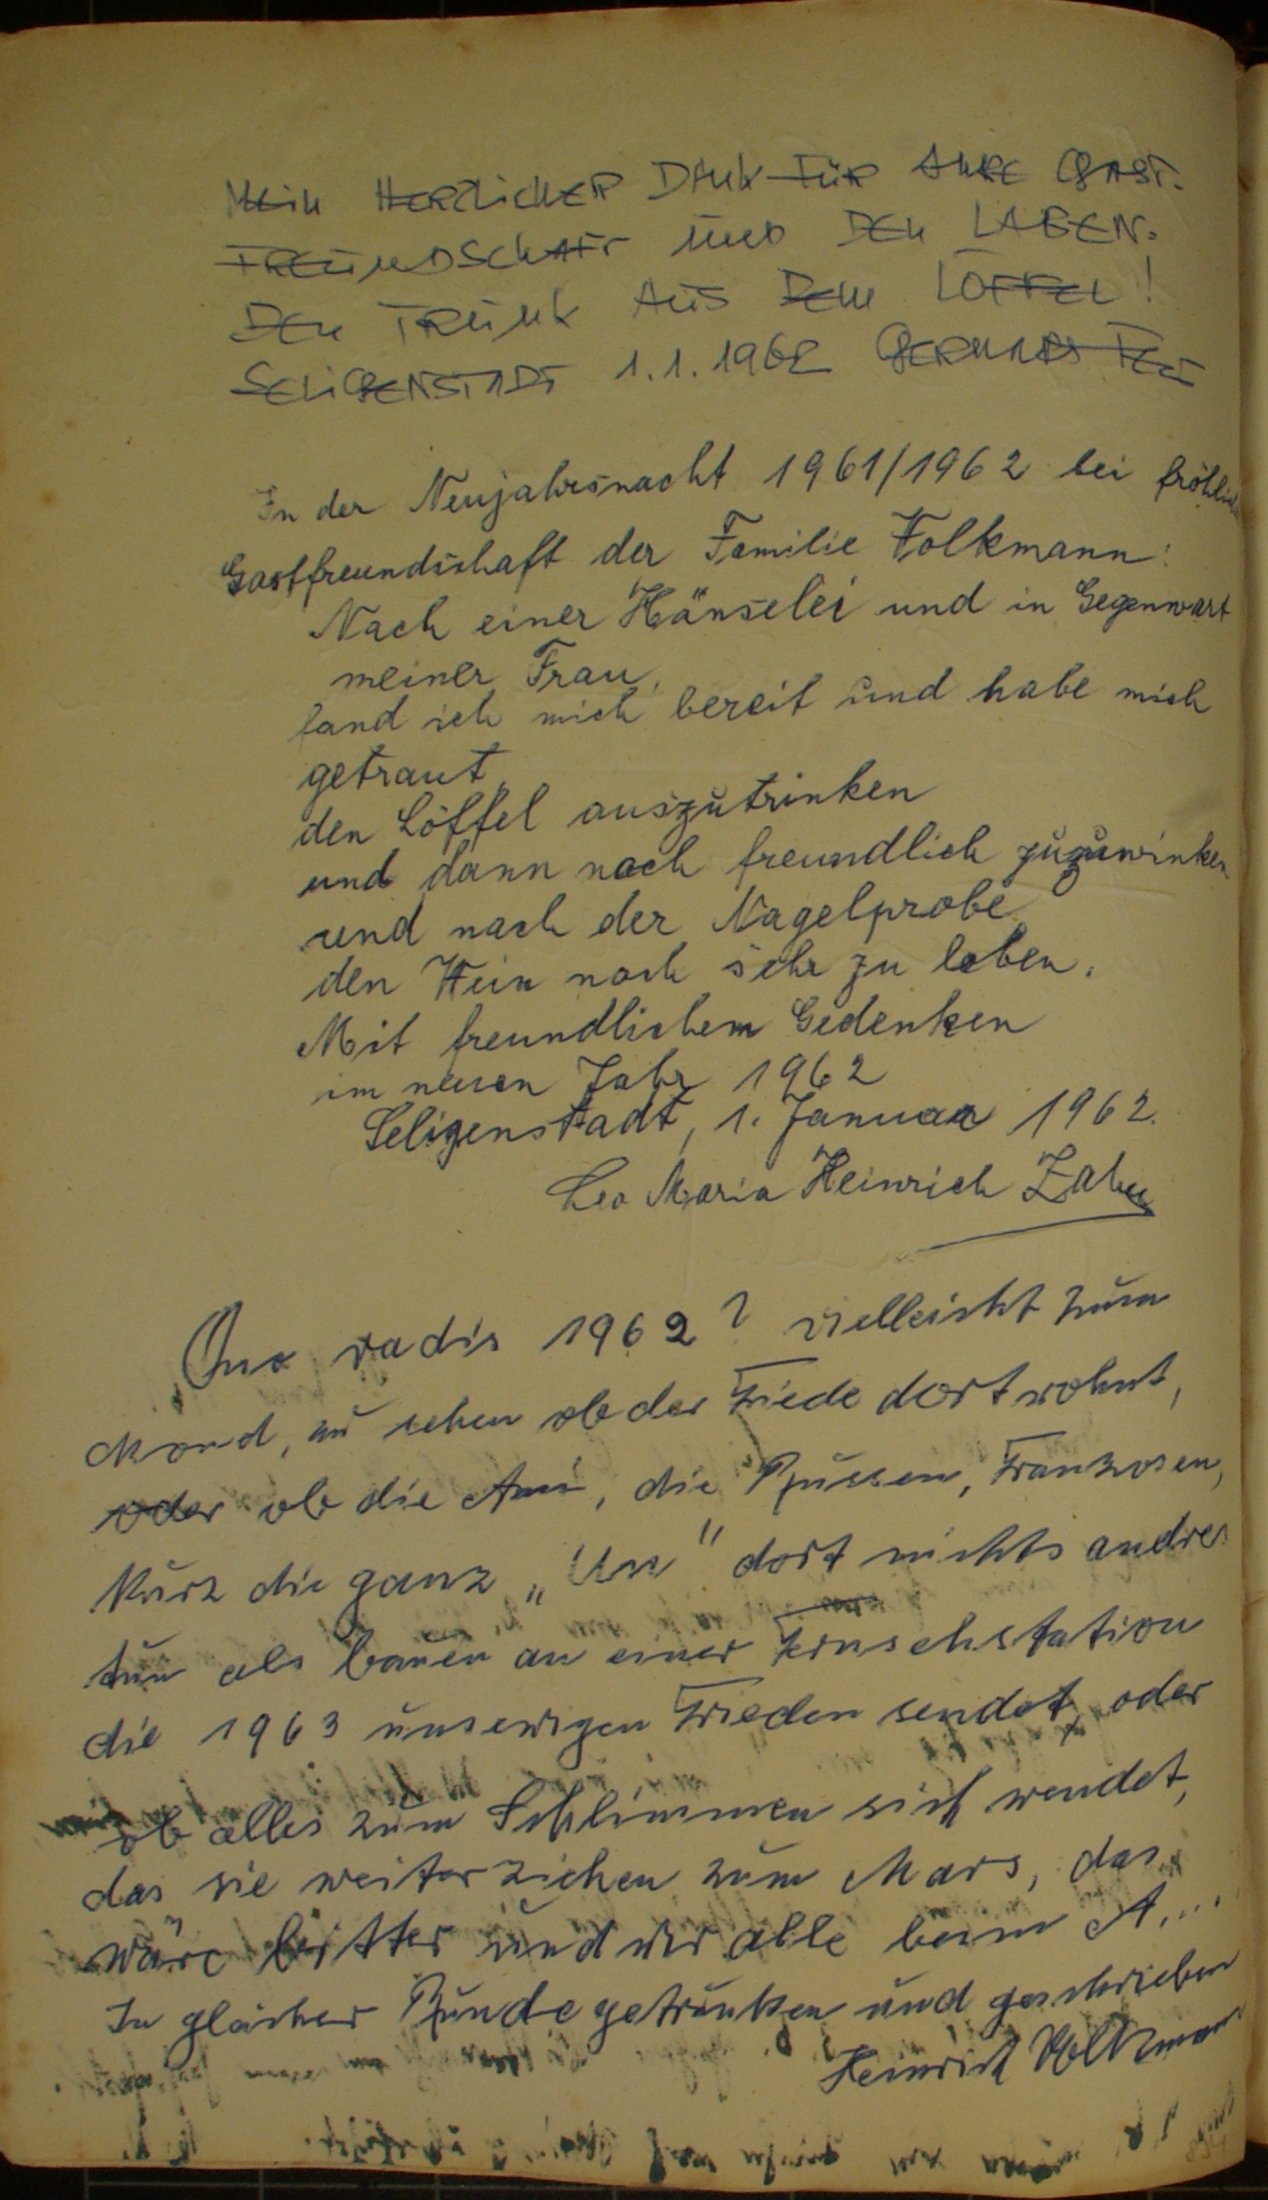 MEIN HERZLICHER DANK FÜR IHRE GAST-
FREUNDSCHAFT UND DEN LABEN-
DEN TRUNK AUS DEM LÖFFEL!
SELIGENSTADT 1.1.1962 GERHARD
In der Neujahrsnacht 1961/1962 bei fröhlich
Gastfreundschaft der Familie Volkmann:
Nach einer Hänselei und in Gegenwart
meiner Frau,
fand ich mich bereit und habe mich
getraut,
den Löffel auszutrinken
und dann noch freundlich zuzuwinken
und nach der Nagelprobe
den Wein noch sehr zu loben.
Mit freundlichem Gedenken
im neuen Jahr 1962
Seligenstadt, 1. Januar 1962.
Leo Maria Heinrich Zahn
Quo vadis 1962? vielleicht zum
Mond, zu sehen ob der Friede dort wohnt,
oder ob die Ami, die Russen, Franzosen,
kurz die ganz „Uno" dort nichts andres
tun als bauen an einer Fernsehstation
die 1963 uns ewigen Frieden sendet, oder
ob alles zum Schlimmen sich wendet,
das sie weiter ziehen zum Mars, das
wäre bitter und wir alle beim A....
In gleicher Runde getrunken und geschrieben
Heinrich Volkmann